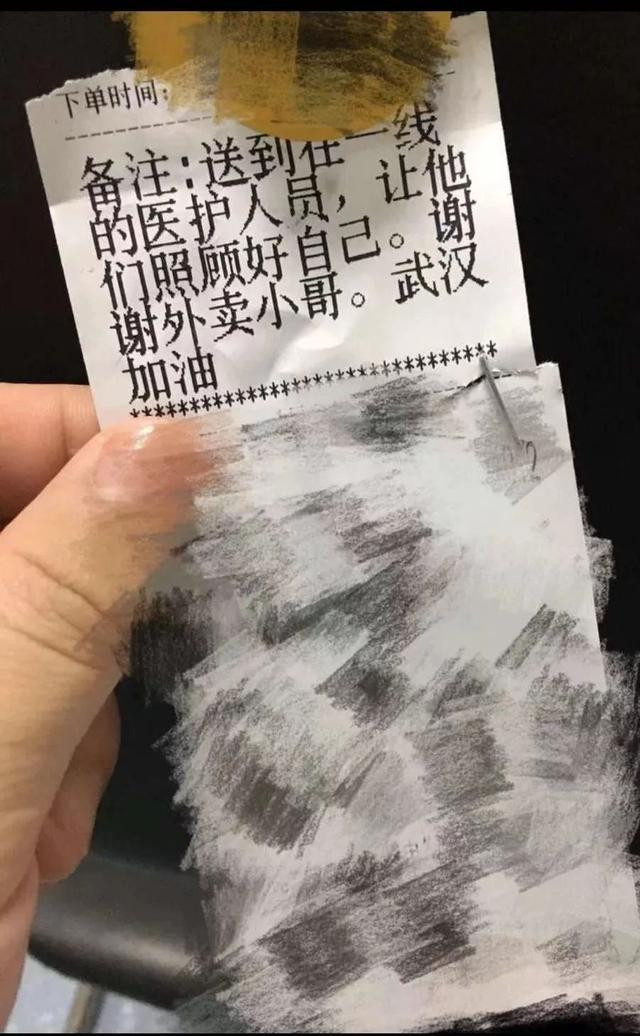 下单时间:
备注:送到在一线
的医护人员，让他
们照顾好自己。谢
谢外卖小哥。武汉
加油
*************************************